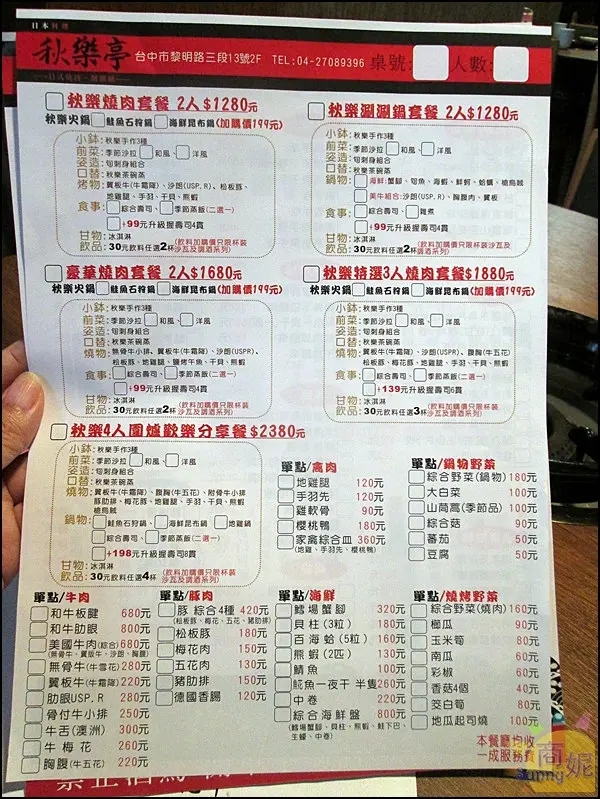 日本料理
秋樂亭 台中市黎明路三段13號2F TEL:04-27089396 桌號: 人數:
秋樂燒肉套餐 2人$1280元
秋樂火鍋 鮭魚石狩鍋 海鮮昆布鍋(加購價199元)
小鉢:秋樂手作3種
前菜:季節沙拉 和風、 洋風
姿造:旬刺身組合
口替:秋樂茶碗蒸
烤物:翼板牛(牛霜降)、沙朗(USP.R)、松板豚、
地雞腿、手羽、干貝、熊蝦
食事: 綜合壽司、 季節蒸飯(二選一)
+99元升級握壽司4貫
甘物:冰淇淋
飲品:30元飲料任選2杯(飲料加購價只限杯裝
沙瓦及調酒系列)
秋樂涮涮鍋套餐 2人$1280元
小鉢:秋樂手作3種
前菜:季節沙拉 和風、 洋風
姿造:旬刺身組合
口替:秋樂茶碗蒸
鍋物: 海鮮:蟹腳、旬魚、海蝦、鮮蚵、蛤蠣、槍烏賊
美牛組合:沙朗(USP.R)、胸腹肉、翼板
食事: 綜合壽司、 雜煮
+99元升級握壽司4貫
甘物:冰淇淋
飲品:30元飲料任選2杯(飲料加購價只限杯裝
沙瓦及調酒系列)
豪華燒肉套餐 2人$1680元
秋樂火鍋 鮭魚石狩鍋 海鮮昆布鍋(加購價199元)
小鉢:秋樂手作3種
前菜:季節沙拉 和風、 洋風
姿造:旬刺身組合
口替:秋樂茶碗蒸
燒物:無骨牛小排、翼板牛(牛霜降)、沙朗(USP.R)、
松板豚、地雞腿、鹽烤午魚、干貝、熊蝦
食事: 綜合壽司、 季節蒸飯(二選一)
+99元升級握壽司4貫
甘物:冰淇淋
飲品:30元飲料任選2杯(飲料加購價只限杯裝
沙瓦及調酒系列)
秋樂特選3人燒肉套餐$1880元
秋樂火鍋 鮭魚石狩鍋 海鮮昆布鍋(加購價199元)
小鉢:秋樂手作3種
前菜:季節沙拉 和風、 洋風
姿造:旬刺身組合
口替:秋樂茶碗蒸
燒物:翼板牛(牛霜降)、沙朗(USP.R)、腹胸(牛五花)
松板豚、梅花豚、地雞腿、手羽、干貝、熊蝦
食事: 綜合壽司、 季節蒸飯(二選一)
+139元升級握壽司6貫
甘物:冰淇淋
飲品:30元飲料任選3杯(飲料加購價只限杯裝
沙瓦及調酒系列)
秋樂4人圍爐歡樂分享餐$2380元
小鉢:秋樂手作3種
前菜:季節沙拉 和風、 洋風
姿造:旬刺身組合
口替:秋樂茶碗蒸
燒物:翼板牛(牛霜降)、腹胸(牛五花)、附骨牛小排
豚肋排、梅花豚、地雞腿、手羽、干貝、熊蝦
槍烏賊
鍋物: 鮭魚石狩鍋、 海鮮昆布鍋、 地雞鍋
綜合壽司、 季節蒸飯(二選一)
+198元升級握壽司8貫
甘物:冰淇淋
飲品:30元飲料任選4杯(飲料加購價只限杯裝
沙瓦及調酒系列)
單點/禽肉
地雞腿 120元
手羽先 120元
雞軟骨 90元
櫻桃鴨 180元
家禽綜合皿 360元
(地雞、手羽先、櫻桃鴨)
單點/鍋物野菜
綜合野菜(鍋物)180元
大白菜 100元
山茼萵(季節品)100元
綜合菇 90元
蕃茄 50元
豆腐 50元
單點/牛肉
和牛板腱 680元
和牛肋眼 800元
美國牛肉(綜合)680元
(無骨牛、翼版牛、沙朗、胸腹)
無骨牛(牛雪花)280元
翼板牛(牛霜降)220元
肋眼USP.R 280元
骨付牛小排 250元
牛舌(澳洲) 300元
牛梅花 260元
胸腹(牛五花) 220元
單點/豚肉
豚 綜合4種 420元
(松板豚、梅花、五花、豬肋排)
松板豚 180元
梅花肉 150元
五花肉 130元
豬肋排 150元
德國香腸 120元
單點/海鮮
鱈場蟹腳 320元
貝柱(3粒) 180元
百海蛤(5粒) 160元
熊蝦(2匹) 130元
鯖魚 100元
魷魚一夜干 半隻260元
中卷 220元
綜合海鮮盤 800元
(鱈場蟹腳、貝柱、熊蝦、鮭下巴、
生蠔、中卷)
單點/燒烤野菜
綜合野菜(燒肉)160元
櫛瓜 90元
玉米筍 80元
南瓜 60元
彩椒 60元
香菇4個 40元
茭白筍 80元
地瓜起司燒 100元
本餐廳均收
一成服務費
商妮
Sunny